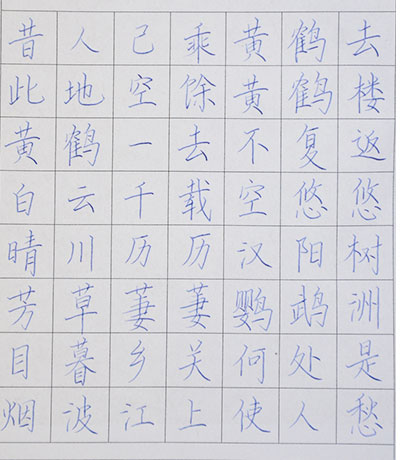 昔人已乘黄鹤去
此地空馀黄鹤楼
黄鹤一去不复返
白云千载空悠悠
晴川历历汉阳树
芳草萋萋鹦鹉洲
目暮乡关何处是
烟波江上使人愁